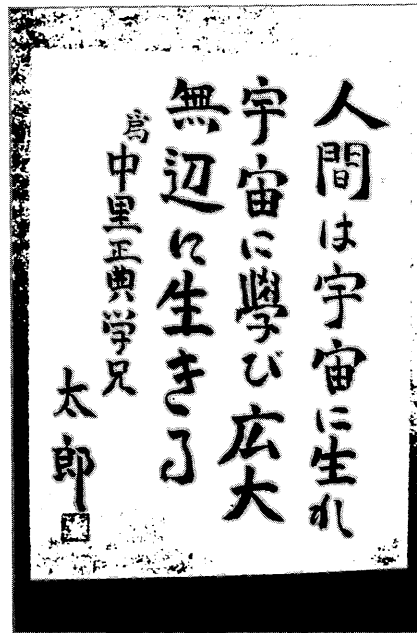 人間は宇宙に生れ
宇宙に學び広大
無辺に生きる
為中里正典学兄
太郎